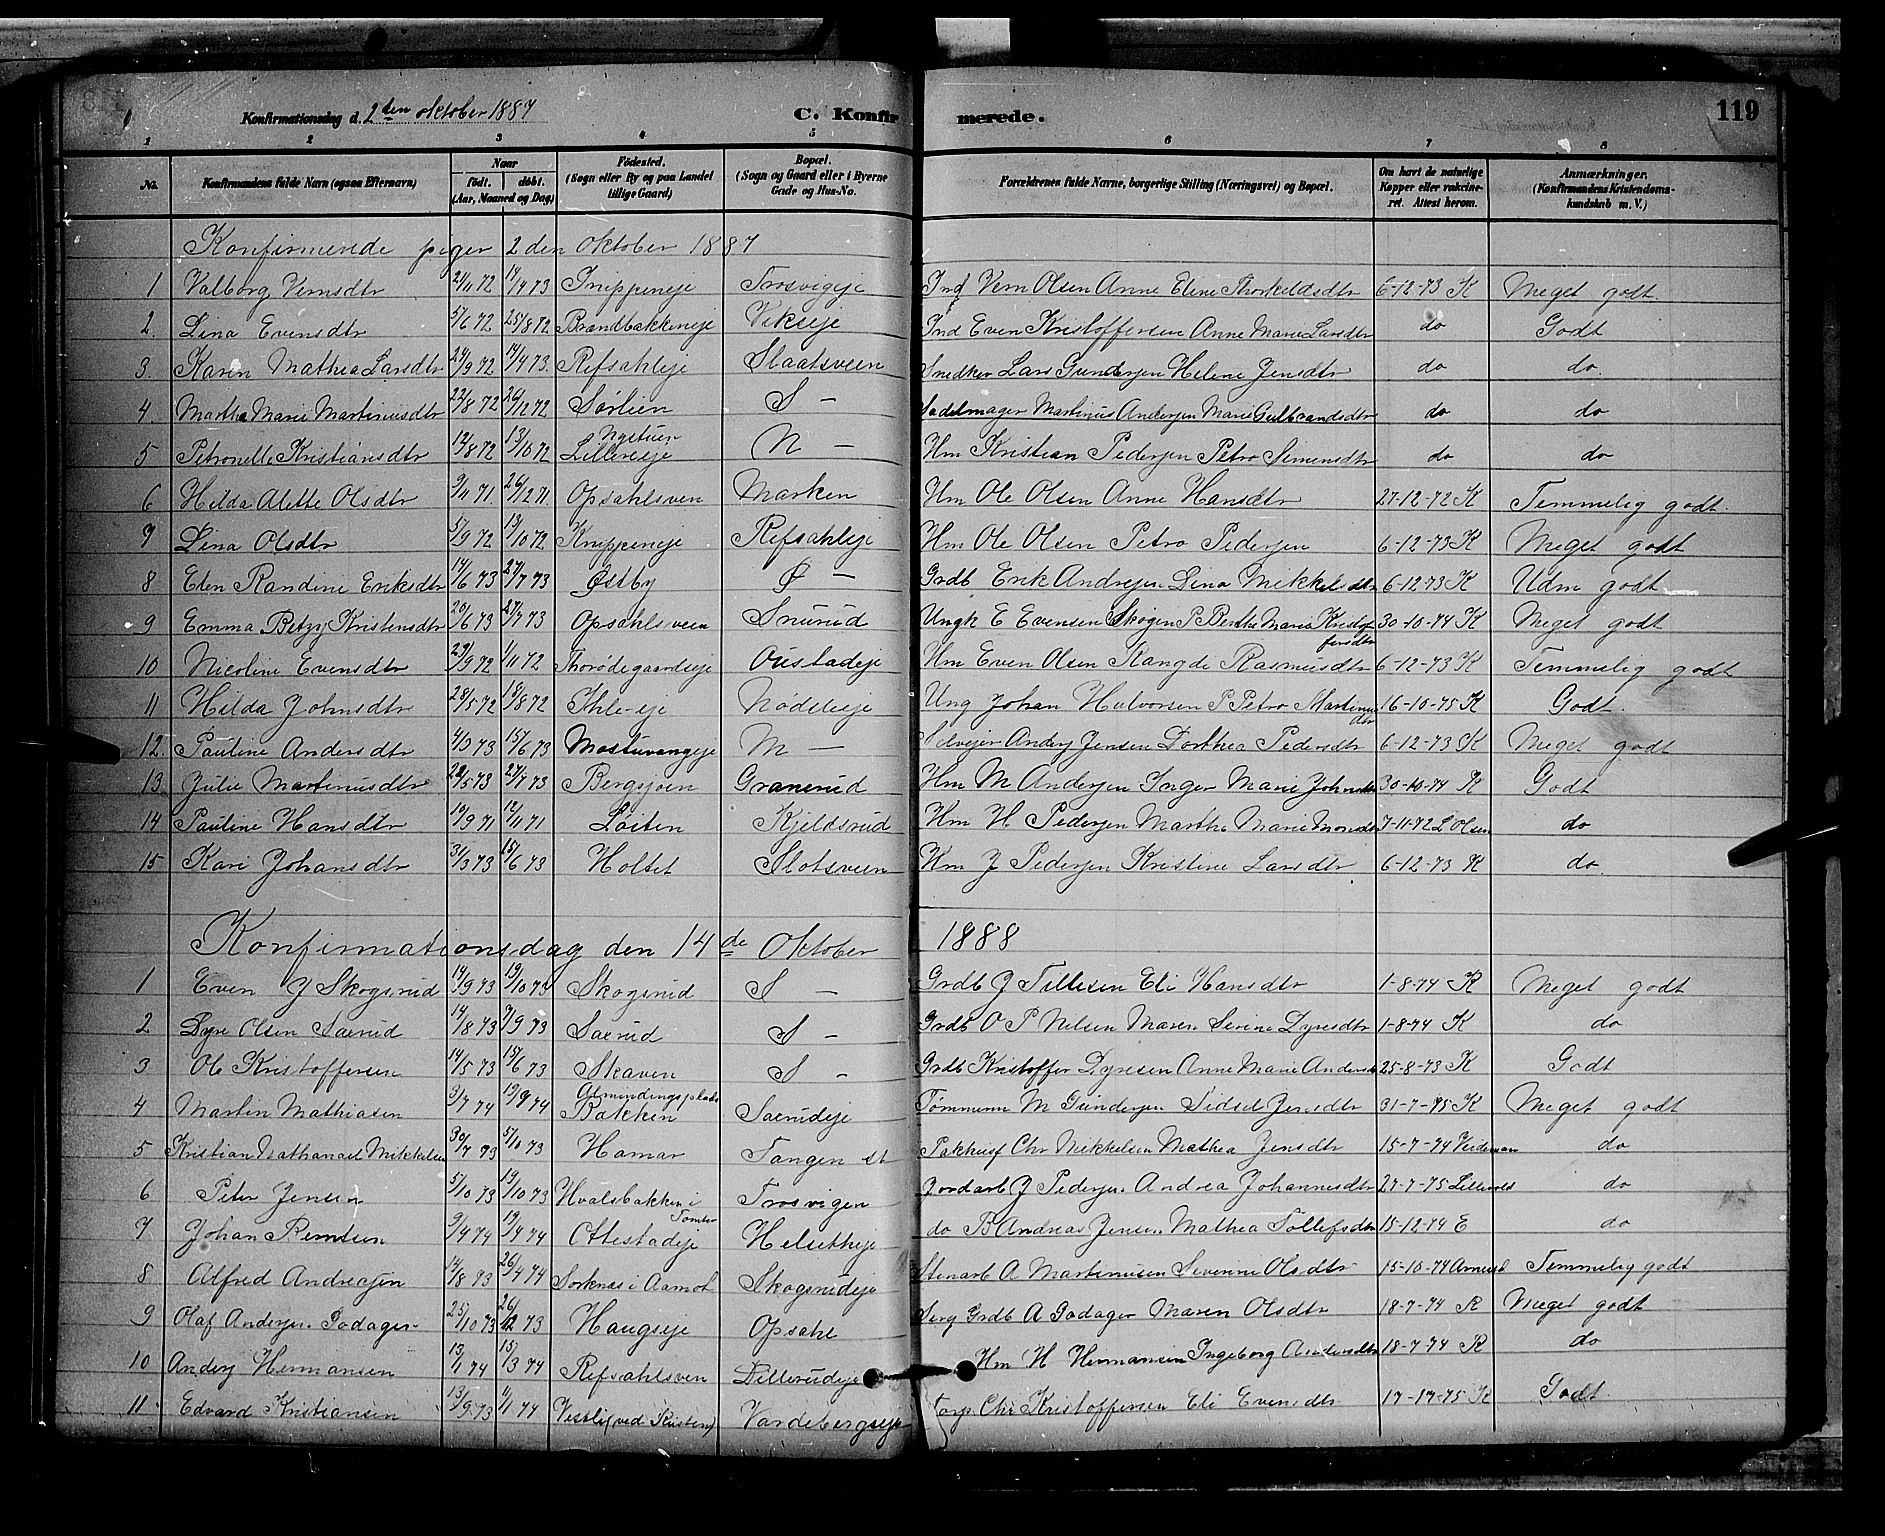 Konfirmationsdag d. 2den oktober 1887 C. Konfirmerede. 119
1 2 3 4 5 6 7 8
No. Konfirmandens fulde Navn (ogsaa Efternavn) Naar født. døbt. (Aar, Maaned og Dag) Fødested. (Sogn eller By og paa Landet tillige Gaard) Bopæl. (Sogn og Gaard eller i Byerne Gade og Hus-No. Forældrenes fulde Navne, borgerlige Stilling (Næringsvei) og Bopæl. Om havt de naturlige Kopper eller vakcineret. Attest herom. Anmærkninger. (Konfirmandens Kristendomskundskab m. V.)
Konfirmerede piger 2 den oktober 1887
1 Valborg Vernsdtr 24/11 72 14/4 73 Gnippeneje Trosvigeje Ind Vern Olsen Anne Eline Thorkeldsdtr 6-12-73 K Meget godt
2 Lina Evensdtr 5/6 72 25/8 72 Brandbakkeneje Vikseje Ind Even Kristoffersen Anne Marie Larsdtr do Godt
3. Karen Mathea Larsdtr 24/9 72 14/4 73. Refsahleje Slaatsveen Snedker Lars Gundersen Helene Jensdtr do do.
4 Martha Marie Martinusdtr 22/8 72 26/12 72 Sørlien S - Sadelmager Martinus Andersen Marie Gulbrandsdtr do do
5 Petronelle Kristiansdtr 12/8 72 13/10 72 Nystuen Lillereeje N - Hm Kristian Pedersen Petra Simensdtr do do
6 Hilda Alette Olsdtr 9/11 71. 26/12 71. Opsahlsven Marken Hm Ole Olsen Anne Hansdtr 27-12-72 K Temmelig godt.
7 Lina Olsdtr 5/9 72 13/10 72 Knippeneje Refsahleje Hm Ole Olsen Petra Pedersen 6-12-73 K Meget godt
8 Elen Randine Eriksdtr 14/6 73 27/7 73 Østby Ø - Grdb Erik Andresen Lina Mikkelsdtr 6-12-73 K Udm godt
9 Emma Betzy Kristensdtr 20/6 73 27/7 73 Opsahlsveen Snurud Ungk E Evensen Skogen P Berthe Marie Kristoffersdtr 30-10-74 K Meget godt
10 Nicoline Evensdtr 29/9 72 1/11 72 Thorødegaardseje Oustadeje Hm Even Olsen Rangdi Rasmusdtr 6-12-73 K Temmelig godt
11 Hilda Johnsdtr 28/5 72 18/8 72 Ihle-eje Nødeleje Ung Johan Halvorsen P Petra Martinusdtr 16-10-75 K Godt.
12. Pauline Andersdtr 4/3 73 15/6 73 Mostuvangeje M - Selvejer Anders Jensen Dorthea Pedersdtr 6-12-73 K Meget godt
13 Julie Martinusdtr 28/5 73 27/7 73 Bergsjøen Granerud Hm M Andersen Inger Marie Johnsdtr 30-10-74 K Godt
14 Pauline Hansdtr 19/9 71 12/11 71 Løiten Kjeldsrud Hm H Pedersen Marthe Marie Monsdtr 7-11-72 L Olsen do
15 Kari Johansdtr 31/3 73 15/6 73 Holset Slotsveen Hm J Pedersen Kristine Larsdtr 6-12-73 K do
Konfirmationsdag den 14de Oktober 1888
1 Even J Skogsrud 14/9 73 19/10 73 Skogsrud S - Grdb J Tillesen Eli Hansdtr 1-8-74 K Meget godt
2 Dyre Olsen Saerud 14/8 73 7/9 73 Saerud S - Grdb O P Nilsen Maren Serine Dyresdtr 1-8-74 K do
3 Ole Kristoffersen 14/5 73 15/6 73 Skaven S - Grdb Kristoffer Dyresen Anne Marie Andersd 25-8-73 K Godt
4 Martin Mathiasen 3/7 74 19/9 74 Almindingsplads Bakken Saerudeje Tømmerm M Gundersen Sidsel Jensdtr 31-7-75 K Meget godt
5 Kristian Nathanael Mikkelsen 30/7 73 5/10 73 Hamar Tangen st Pakhusf Chr Mikkelsen Mathea Jensdtr 15-7-74 Veideman do
6 Peter Jensen 5/10 73 19/10 73 Hvalsbakken i Tomter Trosvigen Jordarb J Pedersen Andrea Johannesdtr 27-7-75 Lillevold do
7 Johan Berntsen 9/4 74 19/4 74 Ottestadeje Helsetheje do B Andreas Jensen Mathea Tollefsdtr 15-12-74 E do
8 Alfred Andreasen 14/8 73 26/4 74 Sorknæs i Aamot Skogsrudeje Stenarb A Martinusen Severine Olsdtr 15-10-74 Temmelig godt
9 Olaf Andersen Godager 25/10 73 26/12 73 Haugseje Opsahl Serg Grdb A Godager Maren Olsdtr 18-7-74 R Meget godt
10 Anders Hermansen 13/1 74 15/3 74 Refsahlsven Dillerudeje Hm H Hermansen Ingeborg Andersdtr 18-7-74 R do
11. Edvard Kristiansen 13/9 73 1/1 74 Vestli (ved Kirken) Vardebergseje Torp Chr Kristoffersen Eli Evensdtr 17-17-75 K Godt